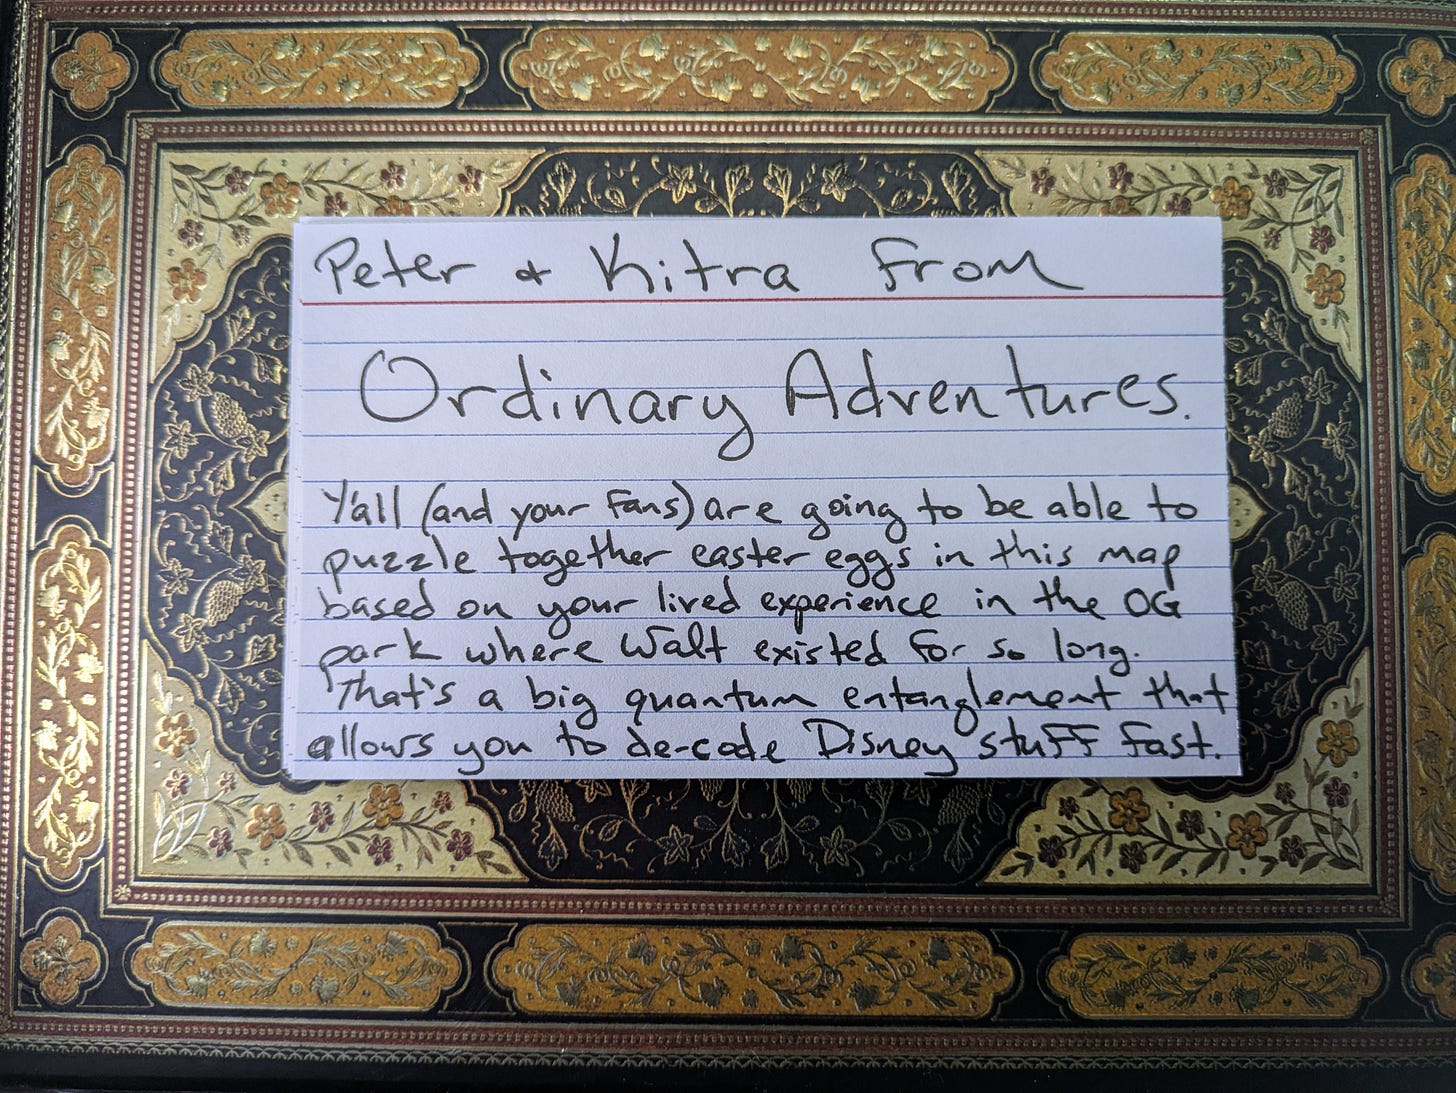 Peter & Kitra From
Ordinary Adventures.
Y'all (and your Fans) are going to be able to
puzzle together easter eggs in this map
based on your lived experience in the OG
park where Walt existed for so long.
That's a big quantum entanglement that
allows you to de-code Disney stuff fast.